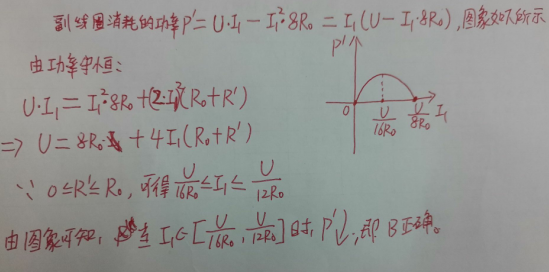 副线圈消耗的功率P'=U·I₁-I₁²·8R₀=I₁(U-I₁·8R₀),图象如下所示
由功率守恒:
U·I₁=I₁²·8R₀+(2·I₁)²(R₀+R')
⇒ U=8R₀·I₁+4I₁(R₀+R')
∵ 0≤R'≤R₀,可得U/16R₀≤I₁≤U/12R₀
由图象可知,当I₁∈[U/16R₀,U/12R₀]时,P'↓,即B正确。
P'
0
U/16R₀
U/8R₀
I₁